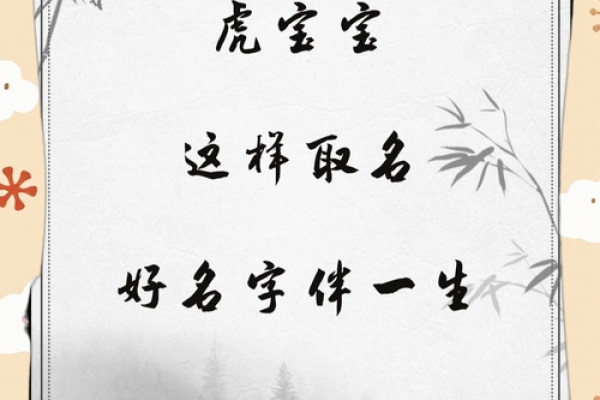 虎宝宝
这样取名
好名字伴一生